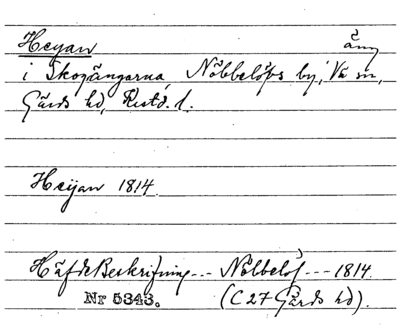 Heyan äng
i Skogängarna Nöbbelöfs by, Vä sn,
Gärds hd, Krstd. l.
Heijan 1814
Häfde Beskrifning --- Nöbbelöf --- 1814.
Nr 5343. (C 27 Gärds hd).